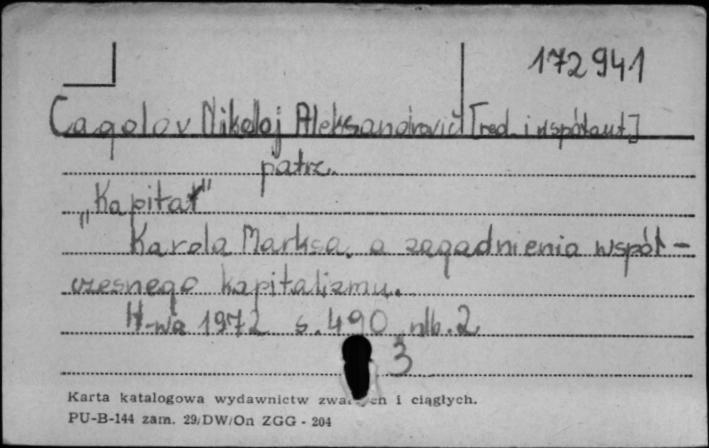 172941
Cagolov Nikolaj Aleksandrovič [red. i współaut.]
patrz.
„Kapitał"
Karola Marksa, a zagadnienia współ-
czesnego kapitalizmu.
W-wa 1972 s. 490 nlb. 2
3
Karta katalogowa wydawnictw i ciągłych.
PU-B-144 zam. 29/DW/On ZGG - 204